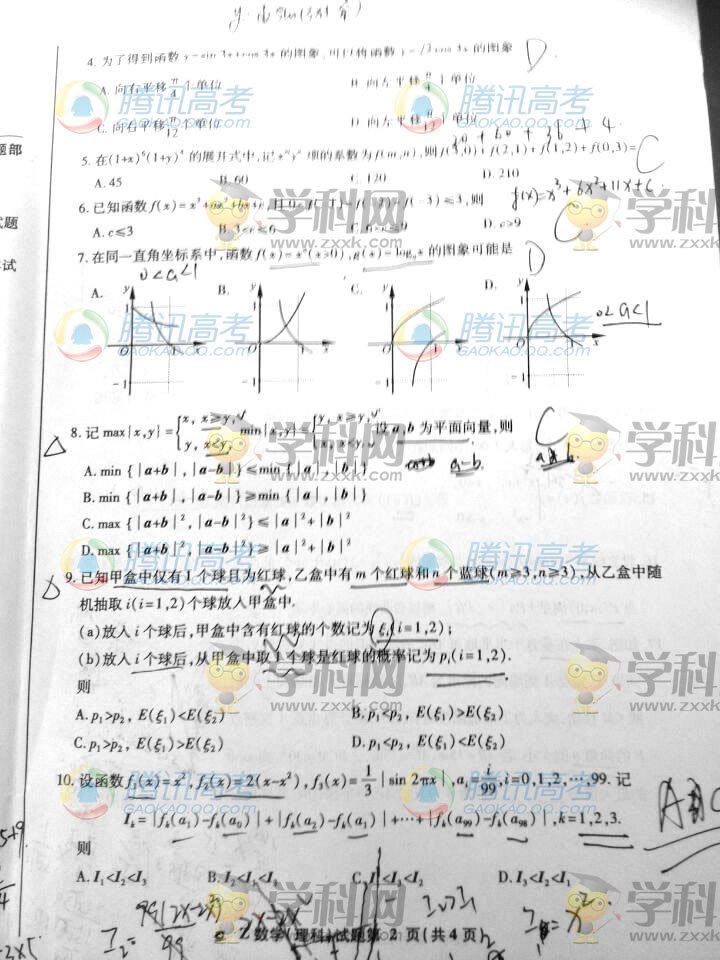 4. 为了得到函数 y=sin 3x+cos 3x 的图象,可以将函数 y=√2 cos 3x 的图象 D
A. 向右平移 π/4 个单位 B. 向左平移 π/4 个单位
C. 向右平移 π/12 个单位 D. 向左平移 π/12 个单位
20 + 60 + 36 + 4
题部
5. 在(1+x)⁶(1+y)⁴ 的展开式中,记 xᵐyⁿ 项的系数为 f(m,n),则 f(3,0)+f(2,1)+f(1,2)+f(0,3)= C
A. 45 B. 60 C. 120 D. 210
6. 已知函数 f(x)=x³+ax²+bx+c, 且 0<f(-1)=f(-2)=f(-3)≤3,则 f(x)=x³+6x²+11x+6
A. c≤3 B. 3<c≤6 C. 6<c≤9 D. c>9 C
试题
7. 在同一直角坐标系中,函数 f(x)=xᵃ(x>0),g(x)=logₐx 的图象可能是 D
考试
0<a<1
A. B. C. D.
0<a<1
8. 记 max{x,y}={x, x≥y, y, x<y, min{x,y}={y, x≥y, x, x<y, 设 a,b 为平面向量,则 C
a-b
A. min{|a+b|,|a-b|}≤min{|a|,|b|}
B. min{|a+b|,|a-b|}≥min{|a|,|b|}
C. max{|a+b|²,|a-b|²}≤|a|²+|b|²
D. max{|a+b|²,|a-b|²}≥|a|²+|b|²
9. 已知甲盒中仅有 1 个球且为红球,乙盒中有 m 个红球和 n 个蓝球(m≥3,n≥3),从乙盒中随
机抽取 i(i=1,2)个球放入甲盒中.
(a)放入 i 个球后,甲盒中含有红球的个数记为 ξᵢ(i=1,2);
(b)放入 i 个球后,从甲盒中取 1 个球是红球的概率记为 pᵢ(i=1,2).
则
A. p₁>p₂, E(ξ₁)<E(ξ₂) B. p₁<p₂, E(ξ₁)>E(ξ₂)
C. p₁>p₂, E(ξ₁)>E(ξ₂) D. p₁<p₂, E(ξ₁)<E(ξ₂)
10. 设函数 f₁(x)=x², f₂(x)=2(x-x²), f₃(x)=1/3|sin 2πx|, aᵢ=i/99, i=0,1,2,…,99. 记
Iₖ=|fₖ(a₁)-fₖ(a₀)|+|fₖ(a₂)-fₖ(a₁)|+…+|fₖ(a₉₉)-fₖ(a₉₈)|, k=1,2,3.
则
A. I₁<I₂<I₃ B. I₂<I₁<I₃ C. I₁<I₃<I₂ D. I₃<I₂<I₁
数学(理科)试题第 2 页(共 4 页)
腾讯高考
GAOKAO.QQ.COM
学科网
www.zxxk.com